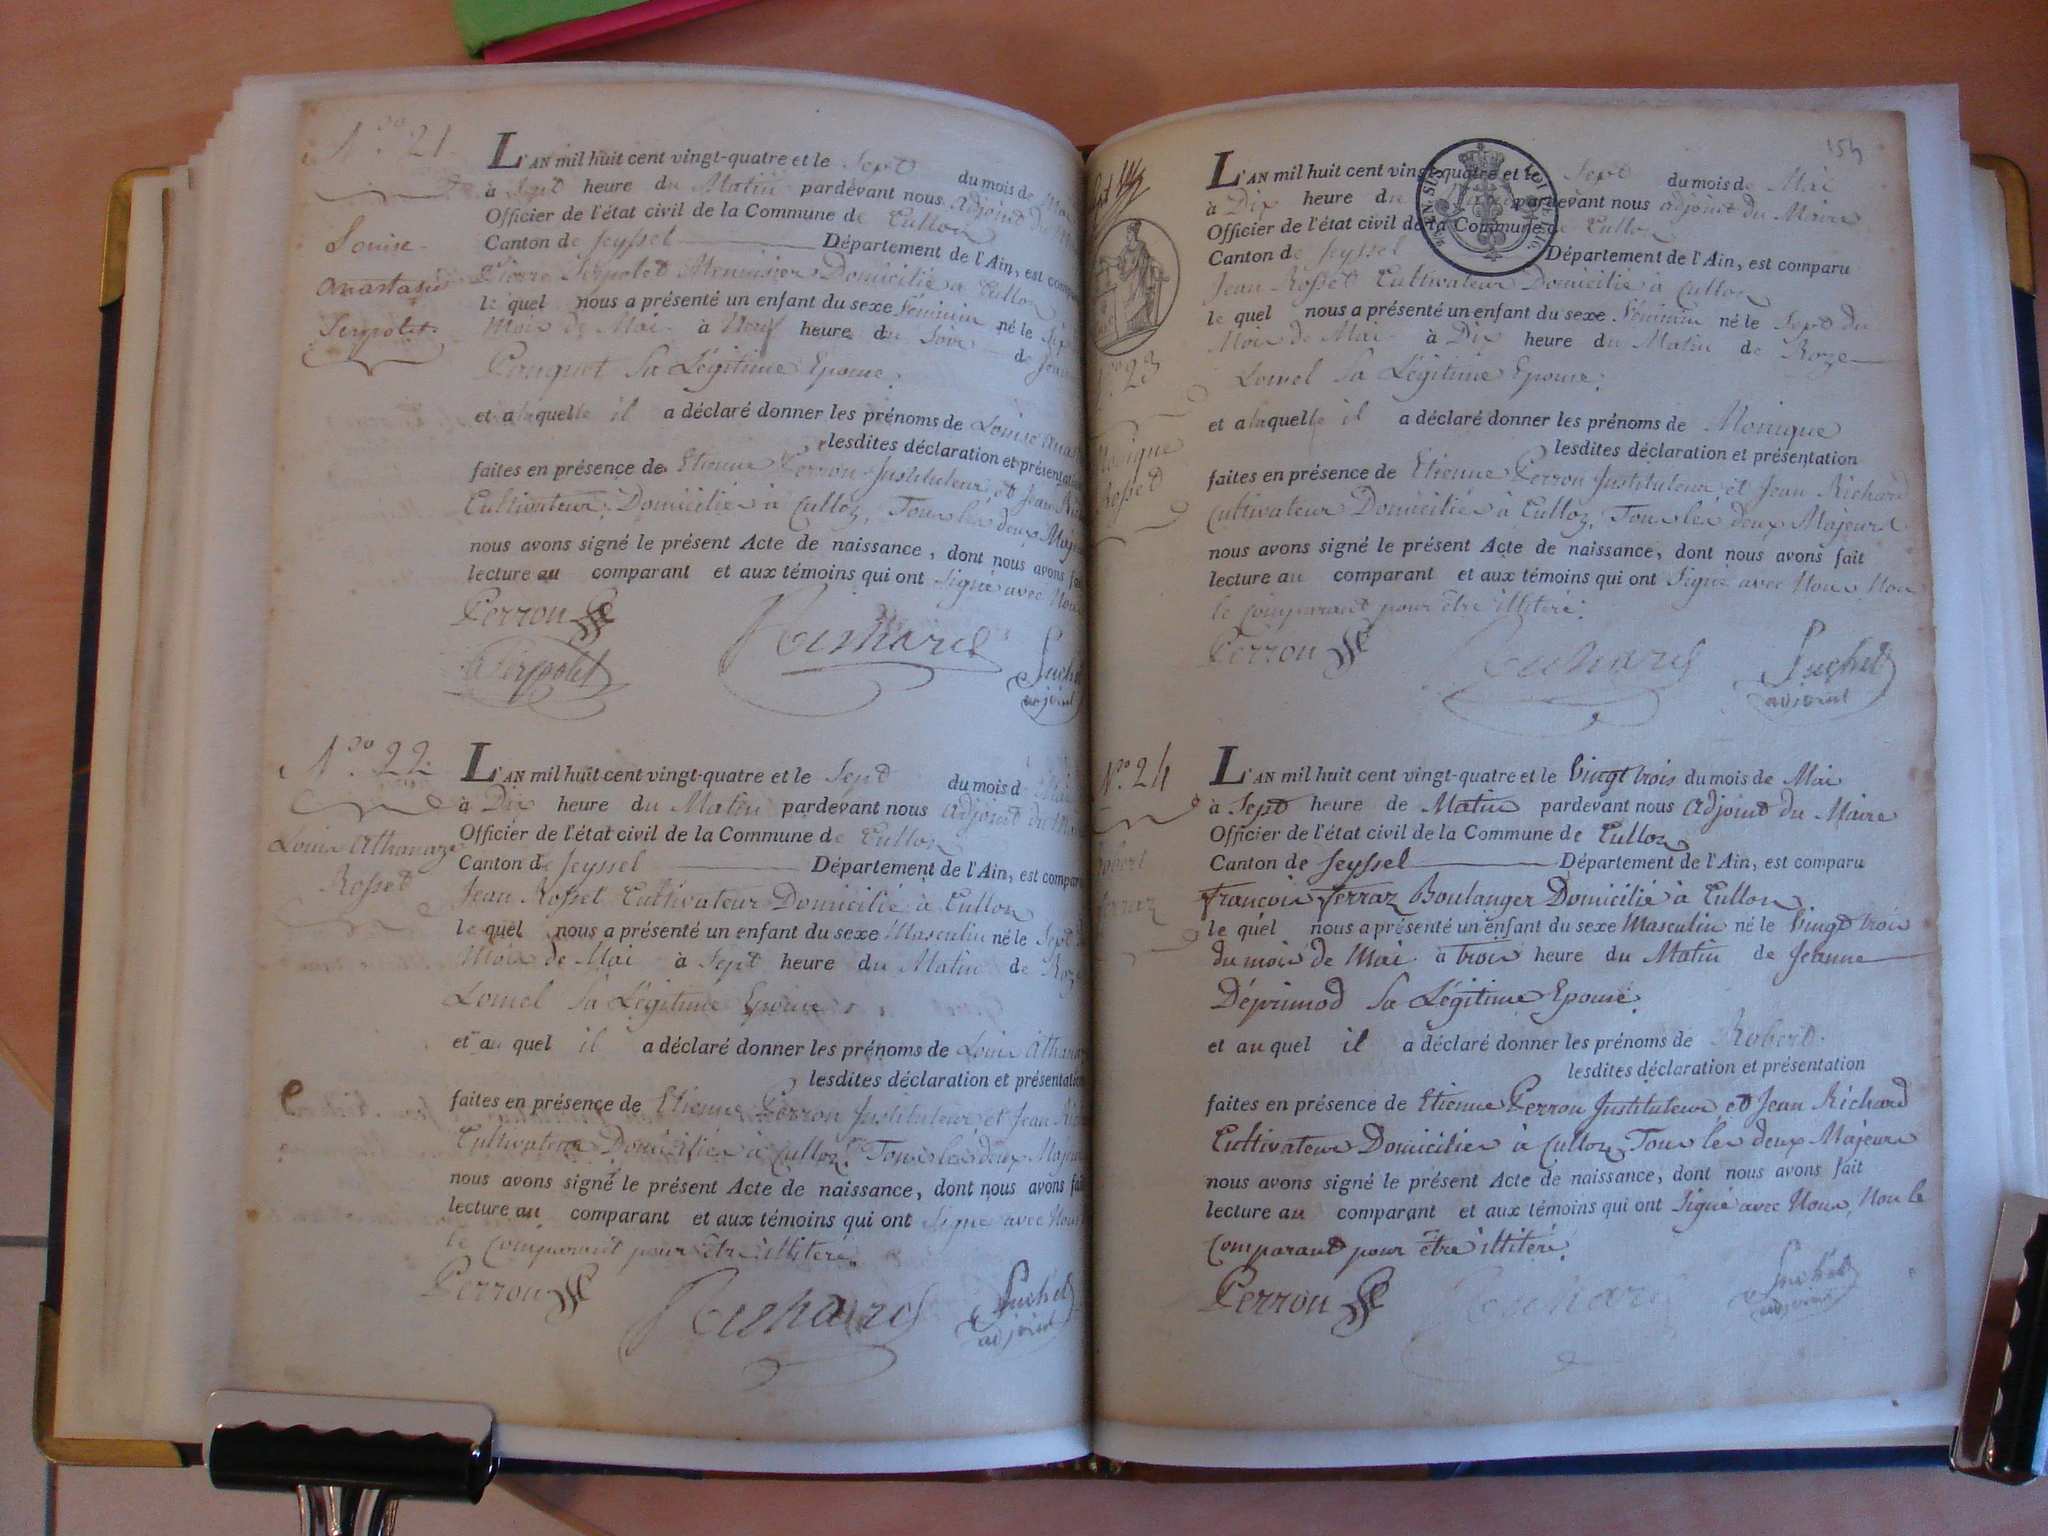 N.º 21
Louise
Anastasie
Serpolet
L'AN mil huit cent vingt-quatre et le Sept du mois de Mai
à Sept heure du Matin pardevant nous adjoint du
Officier de l'état civil de la Commune de Culloz
Canton de Seyssel Département de l'Ain, est comparu
Pierre Serpolet Menuisier Domicilié à Culloz
le quel nous a présenté un enfant du sexe féminin né le Six
Mois de Mai à Neuf heure du Soir de
Ponquet Sa Légitime Epouse.
et a laquelle il a déclaré donner les prénoms de Louise
lesdites déclaration et présentation
faites en présence de Etienne Perron Instituteur et Jean
Cultivateur Domiciliés à Culloz, Tous les deux Majeurs
nous avons signé le présent Acte de naissance, dont nous avons fait
lecture au comparant et aux témoins qui ont Signé avec Nous
Perron
Serpolet Richard Suchet
adjoint
N.º 22
Louis Athanaze
Rosset
L'AN mil huit cent vingt-quatre et le Sept du mois de Mai
à Dix heure du Matin pardevant nous adjoint du
Officier de l'état civil de la Commune de Culloz
Canton de Seyssel Département de l'Ain, est comparu
Jean Rosset Cultivateur Domicilié à Culloz
le quel nous a présenté un enfant du sexe Masculin né le Sept
Mois de Mai à Sept heure du Matin de Roze
Lomel Sa Légitime Epouse
et au quel il a déclaré donner les prénoms de Louis
lesdites déclaration et présentation
faites en présence de Etienne Perron Instituteur et Jean
Cultivateur Domiciliés à Culloz Tous les deux Majeurs
nous avons signé le présent Acte de naissance, dont nous avons fait
lecture au comparant et aux témoins qui ont Signé avec Nous
le Comparant pour être illitéré.
Perron Richard Suchet
adjoint
N.º 23
Monique
Rosset
L'AN mil huit cent vingt-quatre et le Sept du mois de Mai
à Dix heure du pardevant nous adjoint du Maire
Officier de l'état civil de la Commune de Culloz
Canton de Seyssel Département de l'Ain, est comparu
Jean Rosset Cultivateur Domicilié à Culloz
le quel nous a présenté un enfant du sexe féminin né le Sept du
Mois de Mai à Dix heure du Matin de Roze
Lomel Sa Légitime Epouse.
et a laquelle il a déclaré donner les prénoms de Monique
lesdites déclaration et présentation
faites en présence de Etienne Perron Instituteur et Jean Richard
Cultivateur Domiciliés à Culloz, Tous les deux Majeurs
nous avons signé le présent Acte de naissance, dont nous avons fait
lecture au comparant et aux témoins qui ont Signé avec Nous Non
le Comparant pour être illitéré.
Perron Richard Suchet
adjoint
N.º 24
Robert
Ferraz
L'AN mil huit cent vingt-quatre et le Vingt trois du mois de Mai
à Sept heure de Matin pardevant nous adjoint du Maire
Officier de l'état civil de la Commune de Culloz
Canton de Seyssel Département de l'Ain, est comparu
François Ferraz Boulanger Domicilié à Culloz
le quel nous a présenté un enfant du sexe Masculin né le Vingt trois
du mois de Mai à trois heure du Matin de Jeanne
Déprimod Sa Légitime Epouse.
et au quel il a déclaré donner les prénoms de Robert.
lesdites déclaration et présentation
faites en présence de Etienne Perron Instituteur et Jean Richard
Cultivateur Domiciliés à Culloz Tous les deux Majeurs
nous avons signé le présent Acte de naissance, dont nous avons fait
lecture au comparant et aux témoins qui ont Signé avec Nous, Non le
Comparant pour être illitéré.
Perron Richard Suchet
adjoint